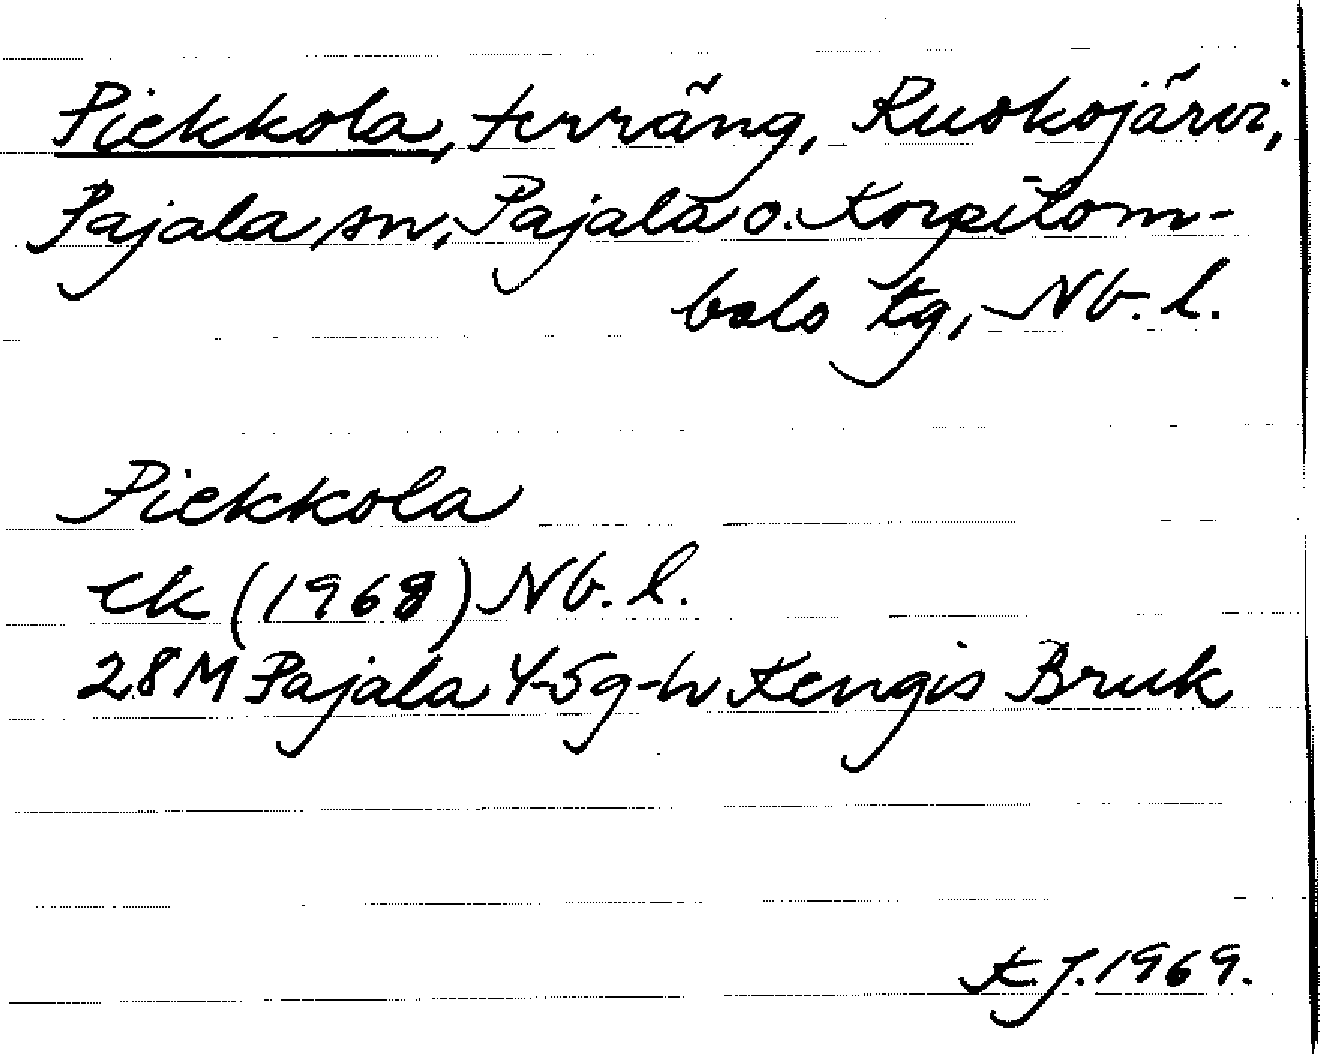 Piekkola, terräng, Ruokojärvi,
Pajala sn, Pajala o. Korpilom-
bolo tg, Nb. l.
Piekkola
ek (1968) Nb. l.
28M Pajala 4-5g-h Kengis Bruk
K.J. 1969.